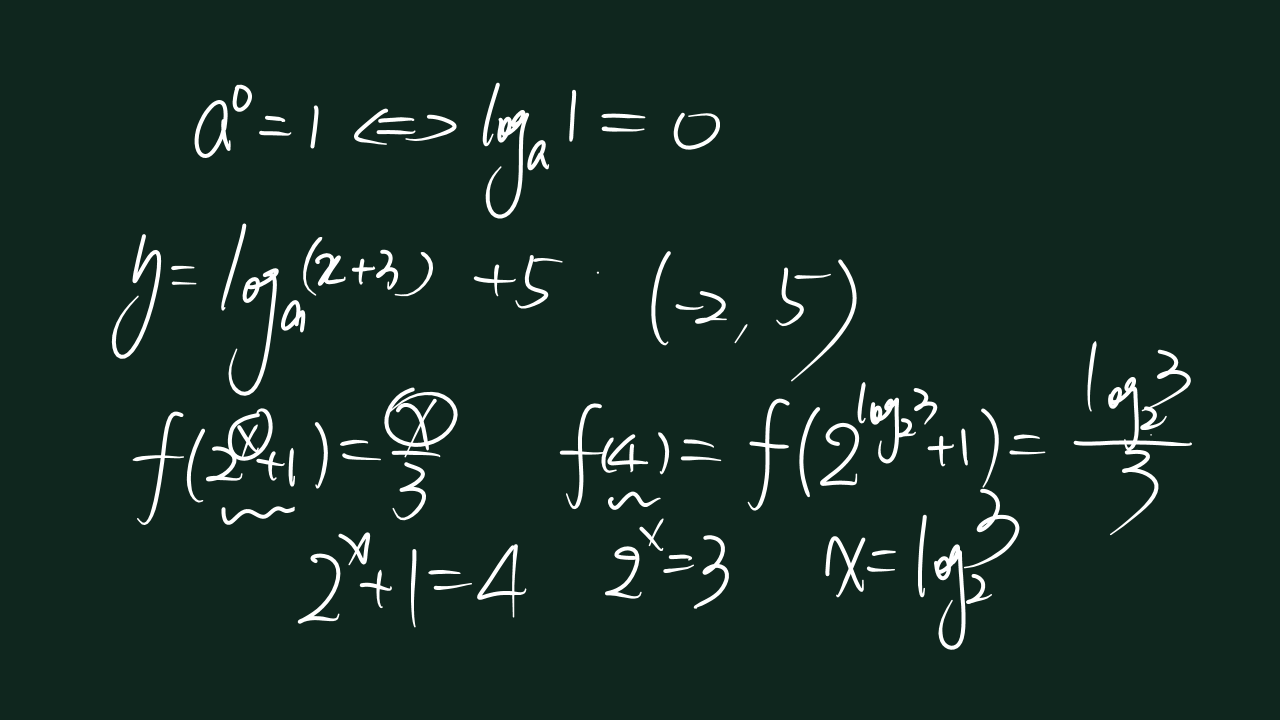 a⁰ = 1 ⟺ logₐ1 = 0
y = logₐ(x+3) + 5 (-2, 5)
f(2ˣ+1) = x/3 f(4) = f(2^(log₂3)+1) = log₂3/3
2ˣ+1=4 2ˣ=3 x=log₂3